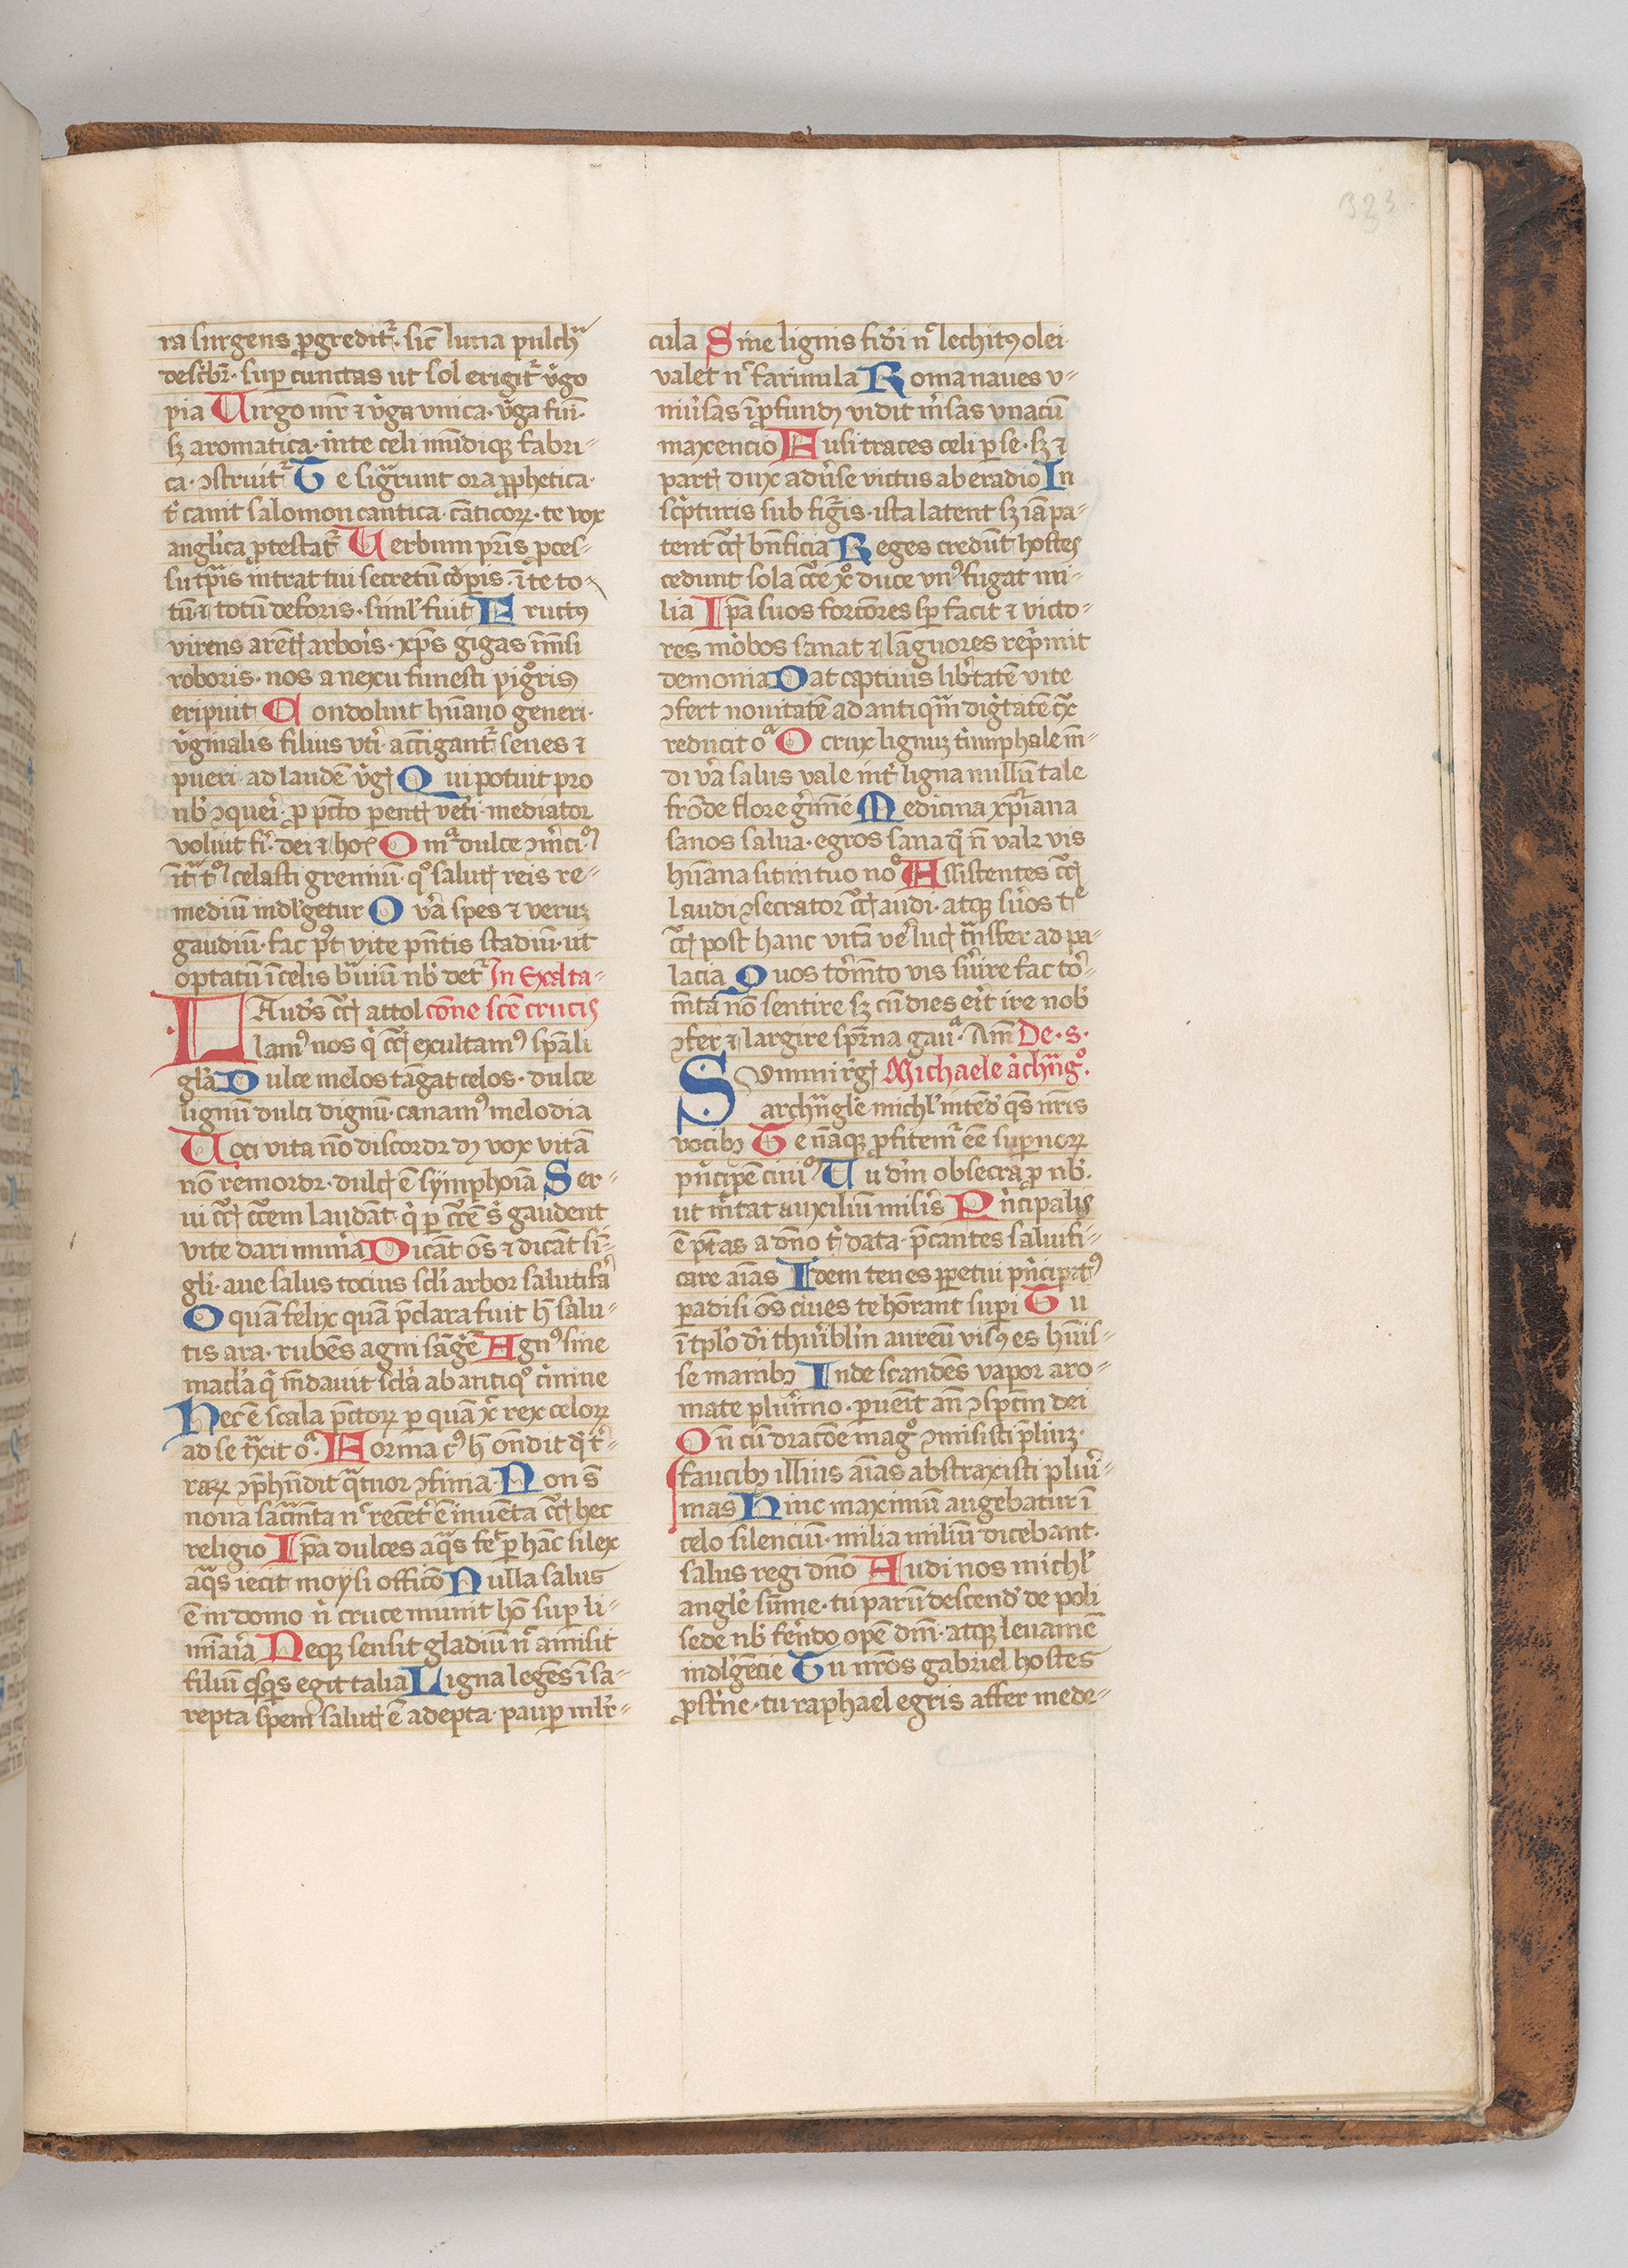 323
ra surgens ꝓgredit᷑. sic̄ luna pulchͣ
describr̄. suꝑ cunctas ut sol erigit᷑ v̾go
pia Uirgo mr̄ ⁊ v̾ga vnica. v̾ga fui.
sꝫ aromatica. in te celi mūdiqꝫ fabri-
ca. ꝯstruit᷑ Te signͣrunt ora ꝓphetica.
t̾ canit salomon cantica. cāticoꝝ. te vox
anglica ꝓtestat᷑ Uerbum pr̄is ꝓces-
su tꝑis intrat tui secretū corꝑis. ī te to-
tū ⁊ totū deforis. siml̾ fuit Fructꝰ
virens arent͛ arboris. xp̄s gigas īmēsi
roboris. nos a nexu funesti pignoris
eripuit Condoluit hūano generi.
v̾ginalis filius vt̾i. accīgant᷑ senes ⁊
pueri. ad laudē v̾g͛ Qui potuit pro
nob̾ ꝯqueri. ꝓ pctō ꝑent͛ vēt̾i. mediator
voluit fi̾. dei ⁊ hoīs O mͣ dulce
celesti gremiū. qͦ salut͛ reis re-
mediū indl̾getur O v̾a spes ⁊ veruꝫ
gaudiū. fac pꝰt vite pn̄tis stadiū. ut
optatū ī celis bͣuiū nob̾ det᷑ In Exalta-
Laudes crͨ͛ attol cōne scē crucis
lamꝰ nos qͥ crͨ͛ exultamꝰ spāli
gl̾a Dulce melos tāgat celos. dulce
lignū dulci dignū. canamꝰ melodia
Uoci vita nō discordꝫ dū vox vitā
nō remordꝫ. dulc͛ ē symphoīa Ser-
ui crͨ͛ crͨcem laudāt qͥ ꝑ crͨcē s̾ gaudent
vite dari munīa Dicāt oēs ⁊ dicāt si-
gl̾i. aue salus tocius scl̾i arbor salutif̾a
O quā felix quā p̄clara fuit h̄ salu-
tis ara. rubēs agni sāgͥe Agnꝰ sine
macl̾a qͥ mūdauit scl̾a ab antiqͦ cͥmine
Hec ē scala pc̄toꝝ ꝑ quā xͨ rex celoꝝ
ad se tͣxit oͣ. Forma cꝰ h̄ ondit qͥ t̾-
raꝝ ꝯp̄hndit qͣtuor ꝯfinia. Non sͭ
noua sacͣmta nͨ recēt̾ ē inuēta crͨ͛ hec
religio Ip̄a dulces aqͣs fec̄ ꝑ hāc silex
aqͣs iecit moysi officō Nulla salus
ē in domo nͥ cruce munit hō suꝑ li-
mīaria Neqꝫ sensit gladiū nͨ amisit
filiū qͥsqͥs egit talia Ligna legēs ī sa-
repta spem salut͛ ē adepta. pauꝑ mlr̾-
cula Sine lignis fidei nͨ lechitꝰ olei.
valet nͨ farinula Roma naues v-
niu̾sas ī ꝓfundū vidit m̾sas vna cū
maxencio Fusi traces celi ꝑse. sꝫ ⁊
part͛ dux adu̾se victus ab eradio In
scͥpturis sub figͥis. ista latent sꝫ iā pa-
tent crͨ͛ bn̄ficia Reges credūt hostes
cedunt sola crͨce xͦ duce vnꝰ fugat mi-
lia Ip̄a suos fortiores sp̄ facit ⁊ victo-
res mōbos sanat ⁊ lāguores repͥmit
demonia Dat captiuis lib̾tatē vite
ꝯfert nouitatē ad antiqͣm dignͥtatē crͨx
reducit oͣ O crux lignuꝫ tͥumphale mū-
di v̾a salus vale int̾ ligna nullū tale
frōde flore g̾mīe Medicina xp̄iana
sanos salua. egros sana qͥ n̄ valꝫ vis
hūana fit in tuo noīe Assistentes crͨ͛
laudi ꝯsecrator crͨ͛ audi. atqꝫ su̾os tͤ
crͨ͛ post hanc vitā ve̾ luc͛ tͣnsfer ad pa-
lacia Quos tōmto vis su̾ire fac to̾-
mta nō sentire sꝫ cū dies erit ire nob̾
ꝯfer ⁊ largire spͤrna gauͣ. Am̄ De. s.
Summi rͤg͛ Michaele ar̄chāgͦ.
archāgl̾e michl̾ intend̾ qͣs nr̄is
vocibꝫ Te nāqꝫ ꝓfitemꝰ eē suꝑnoꝝ
pͥncipē ciuiū Tu dm̄ obsecra ꝓ nob̾.
ut mͥtat auxiliū misͥis Pͥncipalis
ē pt̄as a dn̄o tͥ data. p̄cantes saluifi-
care aīas Idem tenes ꝑpetui pͥncipatꝰ
padisi oēs ciues te honorant suꝑi Tu
ī tplo dei thuribl̾m aureū visꝰ es huis-
se manibꝫ Inde scandēs vapor aro-
mate plurͥmo. ꝑuēit an̄ ꝯspctm dei
Qn̄ cū dracone magͦ ꝯmisisti p̄liuꝫ.
faucibꝫ illius aīas abstraxisti pluri-
mas Hinc maximū augebatur ī
celo silenciū. milia miliū dicebant.
salus regi dn̄o Audi nos michl̾
angl̾e sūme. tu parū descend̾ de poli
sede nob̾ ferēdo opē dm̄. atqꝫ leuamē
indl̾gēcie Tu nr̄os gabriel hostes
ꝓst̾ne. tu raphael egris affer mede-